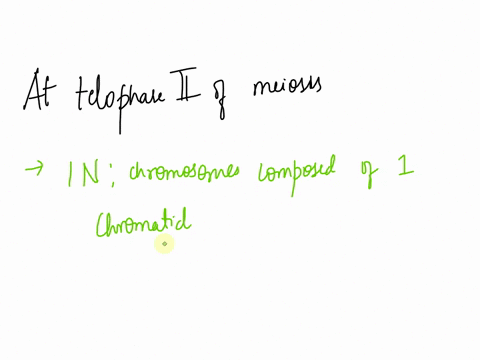 At telophase II of meiosis
→ 1N; chromosomes composed of 1
Chromatid